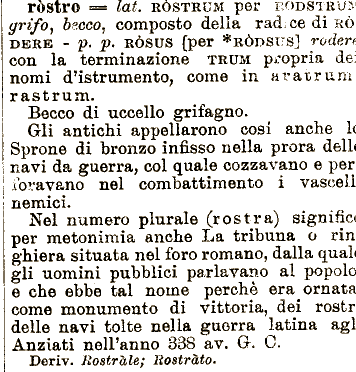 ròstro = lat. RÒSTRUM per RODSTRUM
grifo, becco, composto della radice di RÒ
DERE - p. p. RÒSUS [per *RÒDSUS] rodere
con la terminazione TRUM propria dei
nomi d'istrumento, come in aratrum
rastrum.
Becco di uccello grifagno.
Gli antichi appellarono così anche lo
Sprone di bronzo infisso nella prora delle
navi da guerra, col quale cozzavano e per
foravano nel combattimento i vascell
nemici.
Nel numero plurale (rostra) significò
per metonimia anche La tribuna o rin
ghiera situata nel foro romano, dalla quale
gli uomini pubblici parlavano al popolo
e che ebbe tal nome perchè era ornata
come monumento di vittoria, dei rostr
delle navi tolte nella guerra latina agl
Anziati nell'anno 338 av. G. C.
Deriv. Rostràle; Rostràto.